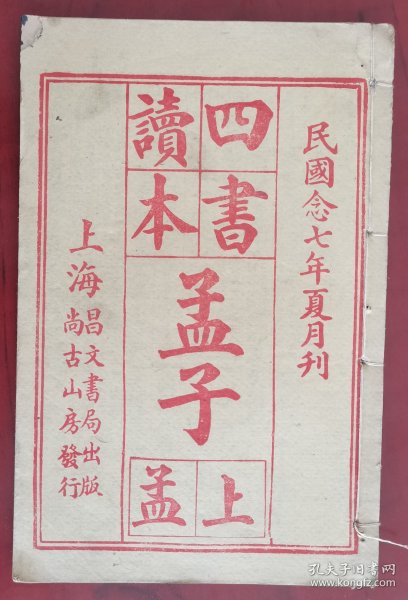 民國念七年夏月刊
四書
讀本
孟子
上孟
上海昌文書局出版
尚古山房發行
孔夫子旧书网
www.kongfz.com